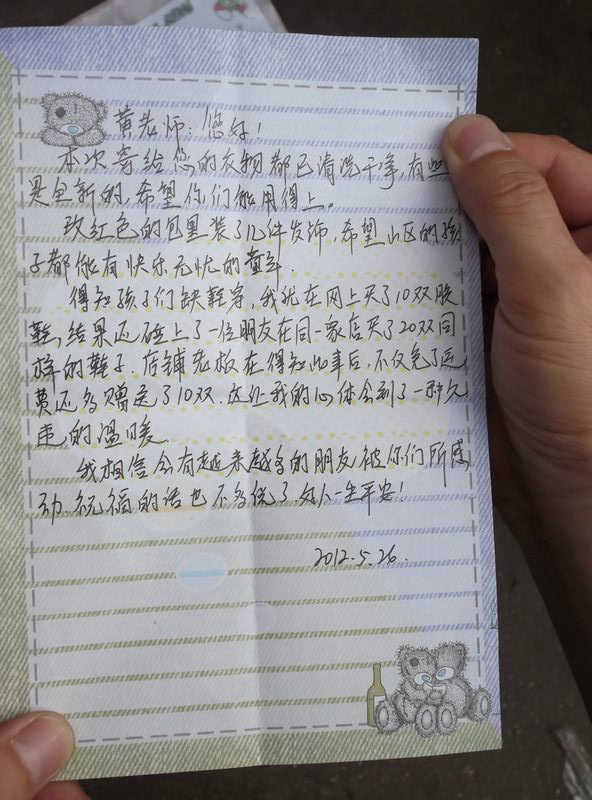 黄老师：您好！
本次寄给您的衣物都已清洗干净，有些
是全新的，希望你们能用得上。
玫红色的包里装了几件发饰，希望山区的孩
子都能有快乐无忧的童年.
得知孩子们缺鞋穿，我就在网上买了10双胶
鞋，结果还碰上了一位朋友在同一家店买了20双同
样的鞋子.店铺老板在得知此事后，不仅免了运
费还多赠送了10双.这让我的心体会到了一种久
违的温暖
我相信会有越来越多的朋友被你们所感
动.祝福的话也不多说了.好人一生平安！
2012.5.26.